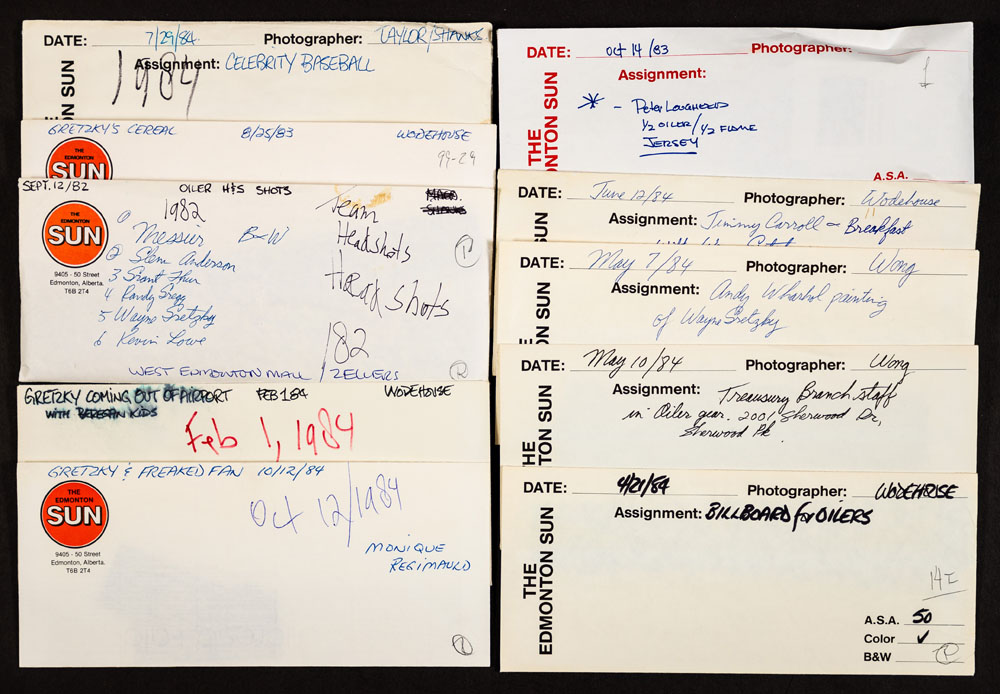 DATE: 7/29/84 Photographer: TAYLOR/SHANKS
Assignment: CELEBRITY BASEBALL
1984
GRETZKY'S CEREAL 8/25/83 WODEHOUSE
99-29
THE
EDMONTON
SUN
SEPT. 12/82 OILER H+S SHOTS
1982
THE
EDMONTON
SUN
9405 - 50 Street
Edmonton, Alberta.
T6B 2T4
1 Messier B-W
2 Glenn Anderson
3 Grant Fuhr
4 Randy Gregg
5 Wayne Gretzky
6 Kevin Lowe
Team
Headshots
Head shots
/82
WEST EDMONTON MALL / ZELLERS
GRETZKY COMING OUT OF AIRPORT FEB 1 84 WODEHOUSE
WITH KIDS
Feb 1, 1984
GRETZKY & FREAKED FAN 10/12/84
Oct 12/1984
THE
EDMONTON
SUN
9405 - 50 Street
Edmonton, Alberta.
T6B 2T4
MONIQUE
REGIMAULD
DATE: Oct 14/83 Photographer:
Assignment:
* - Peter Lougheed
1/2 OILER / 1/2 FLAME
JERSEY
THE
ONTON SUN
A.S.A.
DATE: June 12/84 Photographer: Wodehouse
Assignment: Jimmy Carroll - Breakfast
SUN
DATE: May 7/84 Photographer: Wong
Assignment: Andy Wharhol painting
of Wayne Gretzky
ON SUN
DATE: May 10/84 Photographer: Wong
Assignment: Treasury Branch staff
in Oiler gear. 2001 Sherwood Dr,
Sherwood Pk.
THE
NTON SUN
DATE: 4/21/84 Photographer: WODEHOUSE
Assignment: BILLBOARD for OILERS
THE
EDMONTON SUN
A.S.A. 50
Color ✓
B&W